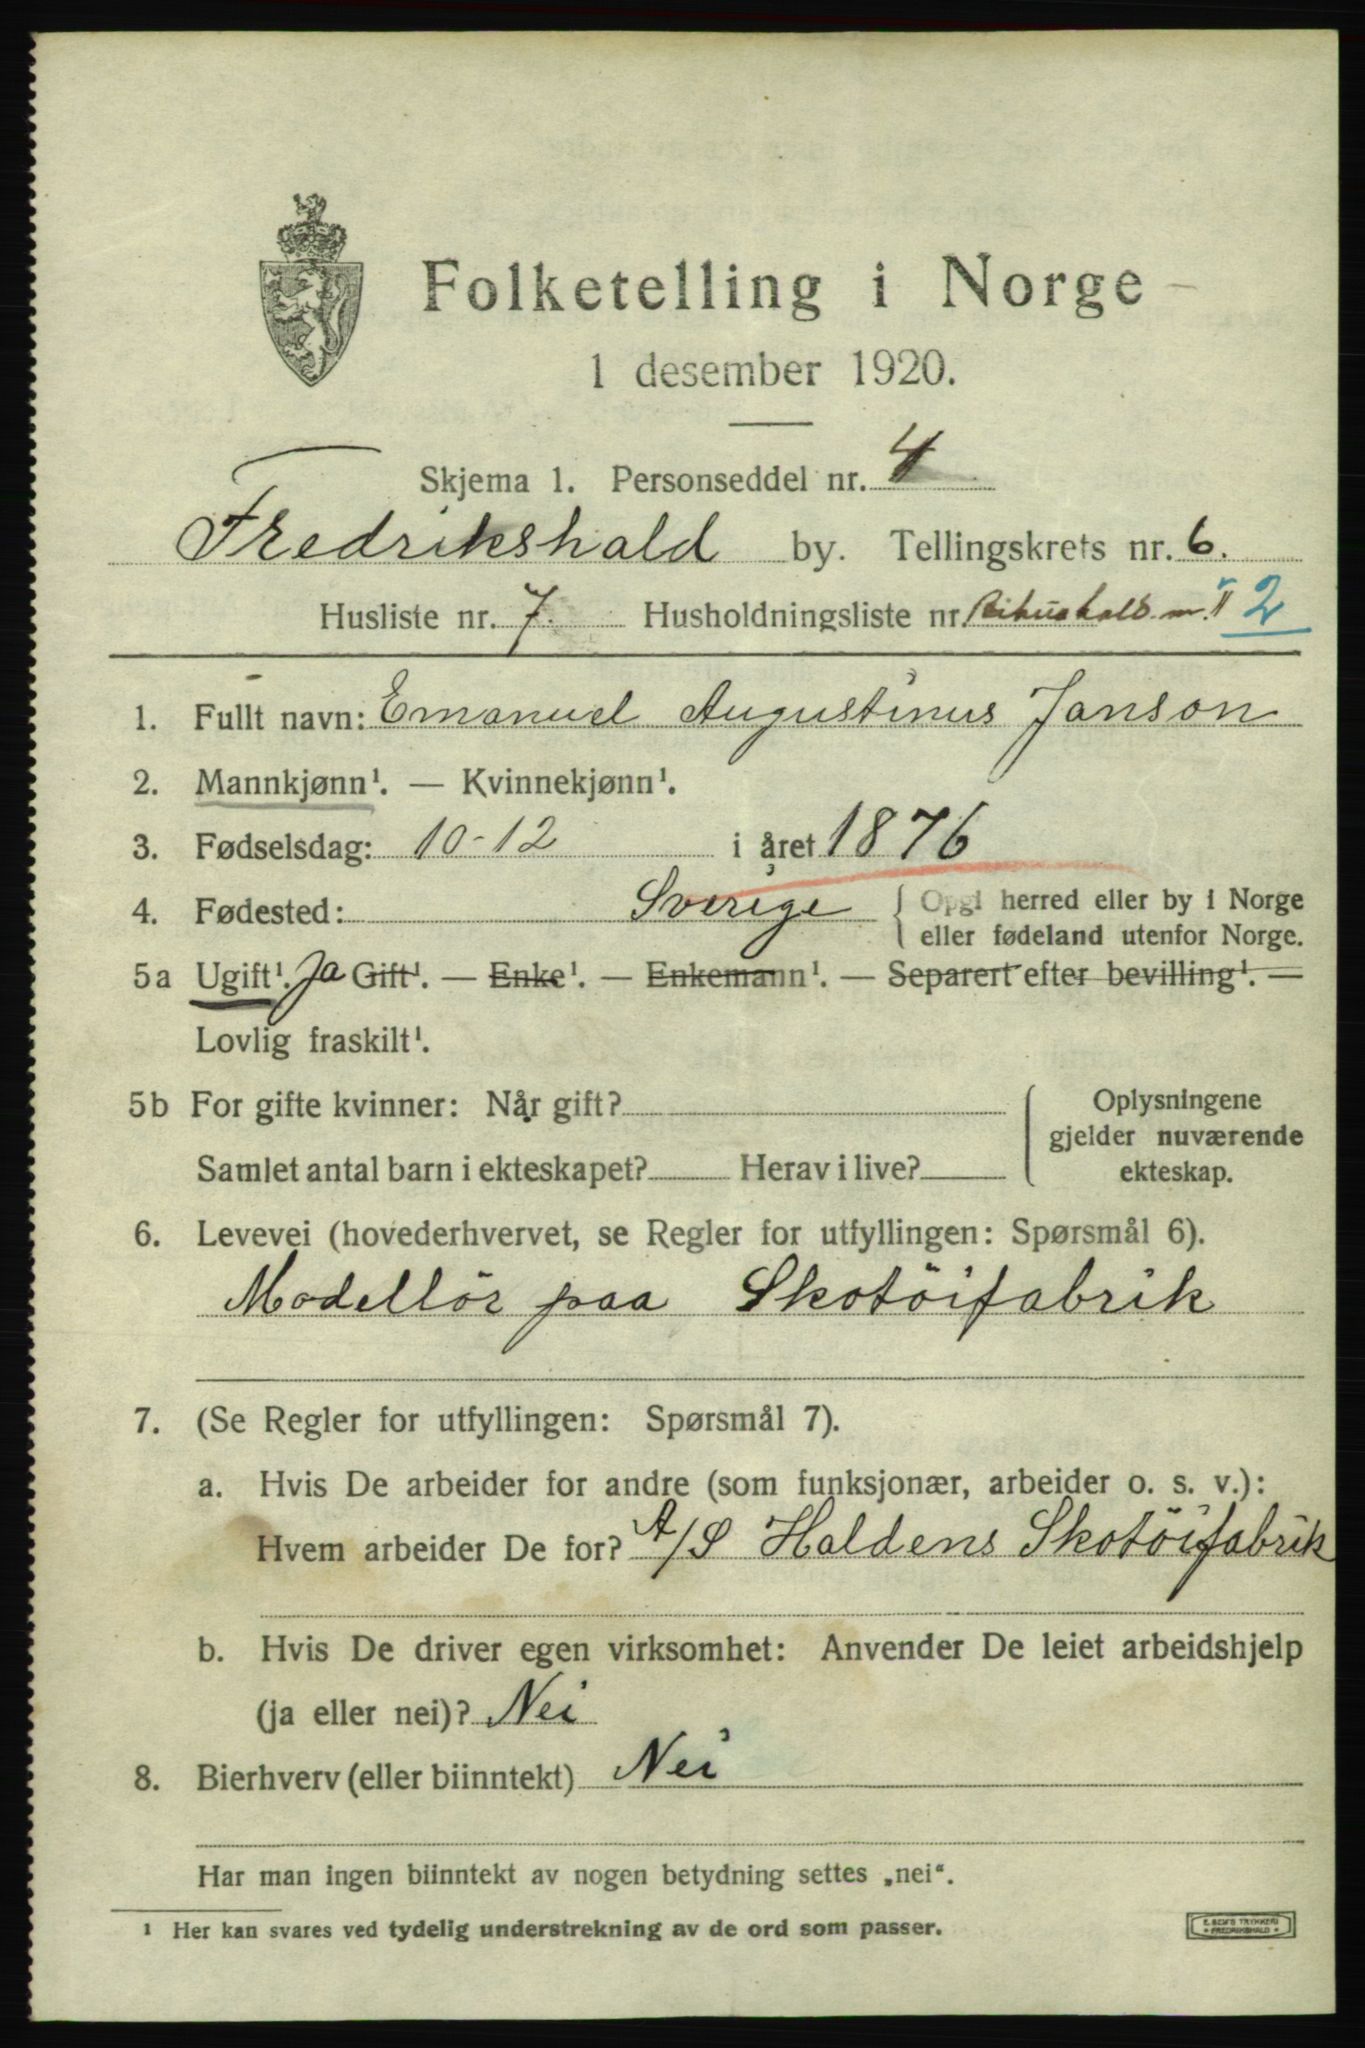 Folketelling i Norge
1 desember 1920.
Skjema 1. Personseddel nr. 4
Fredrikshald by. Tellingskrets nr. 6.
Husliste nr. 7. Husholdningsliste nr. Bihushold nr. II 2
1. Fullt navn: Emanuel Augustinus Janson
2. Mannkjønn¹. — Kvinnekjønn¹.
3. Fødselsdag: 10-12 i året 1876
4. Fødested: Sverige { Opgi herred eller by i Norge
eller fødeland utenfor Norge.
5a Ugift¹. Ja Gift¹. — Enke¹. — Enkemann¹. — Separert efter bevilling¹. —
Lovlig fraskilt¹.
5b For gifte kvinner: Når gift? { Oplysningene
gjelder nuværende
Samlet antal barn i ekteskapet? Herav i live? ekteskap.
6. Levevei (hovederhvervet, se Regler for utfyllingen: Spørsmål 6).
Modellör paa Skotöifabrik
7. (Se Regler for utfyllingen: Spørsmål 7).
a. Hvis De arbeider for andre (som funksjonær, arbeider o. s. v.):
Hvem arbeider De for? A/S Haldens Skotöifabrik
b. Hvis De driver egen virksomhet: Anvender De leiet arbeidshjelp
(ja eller nei)? Nei
8. Bierhverv (eller biinntekt) Nei
Har man ingen biinntekt av nogen betydning settes „nei“.
¹ Her kan svares ved tydelig understrekning av de ord som passer.
TRYKKERI
FREDRIKSHALD